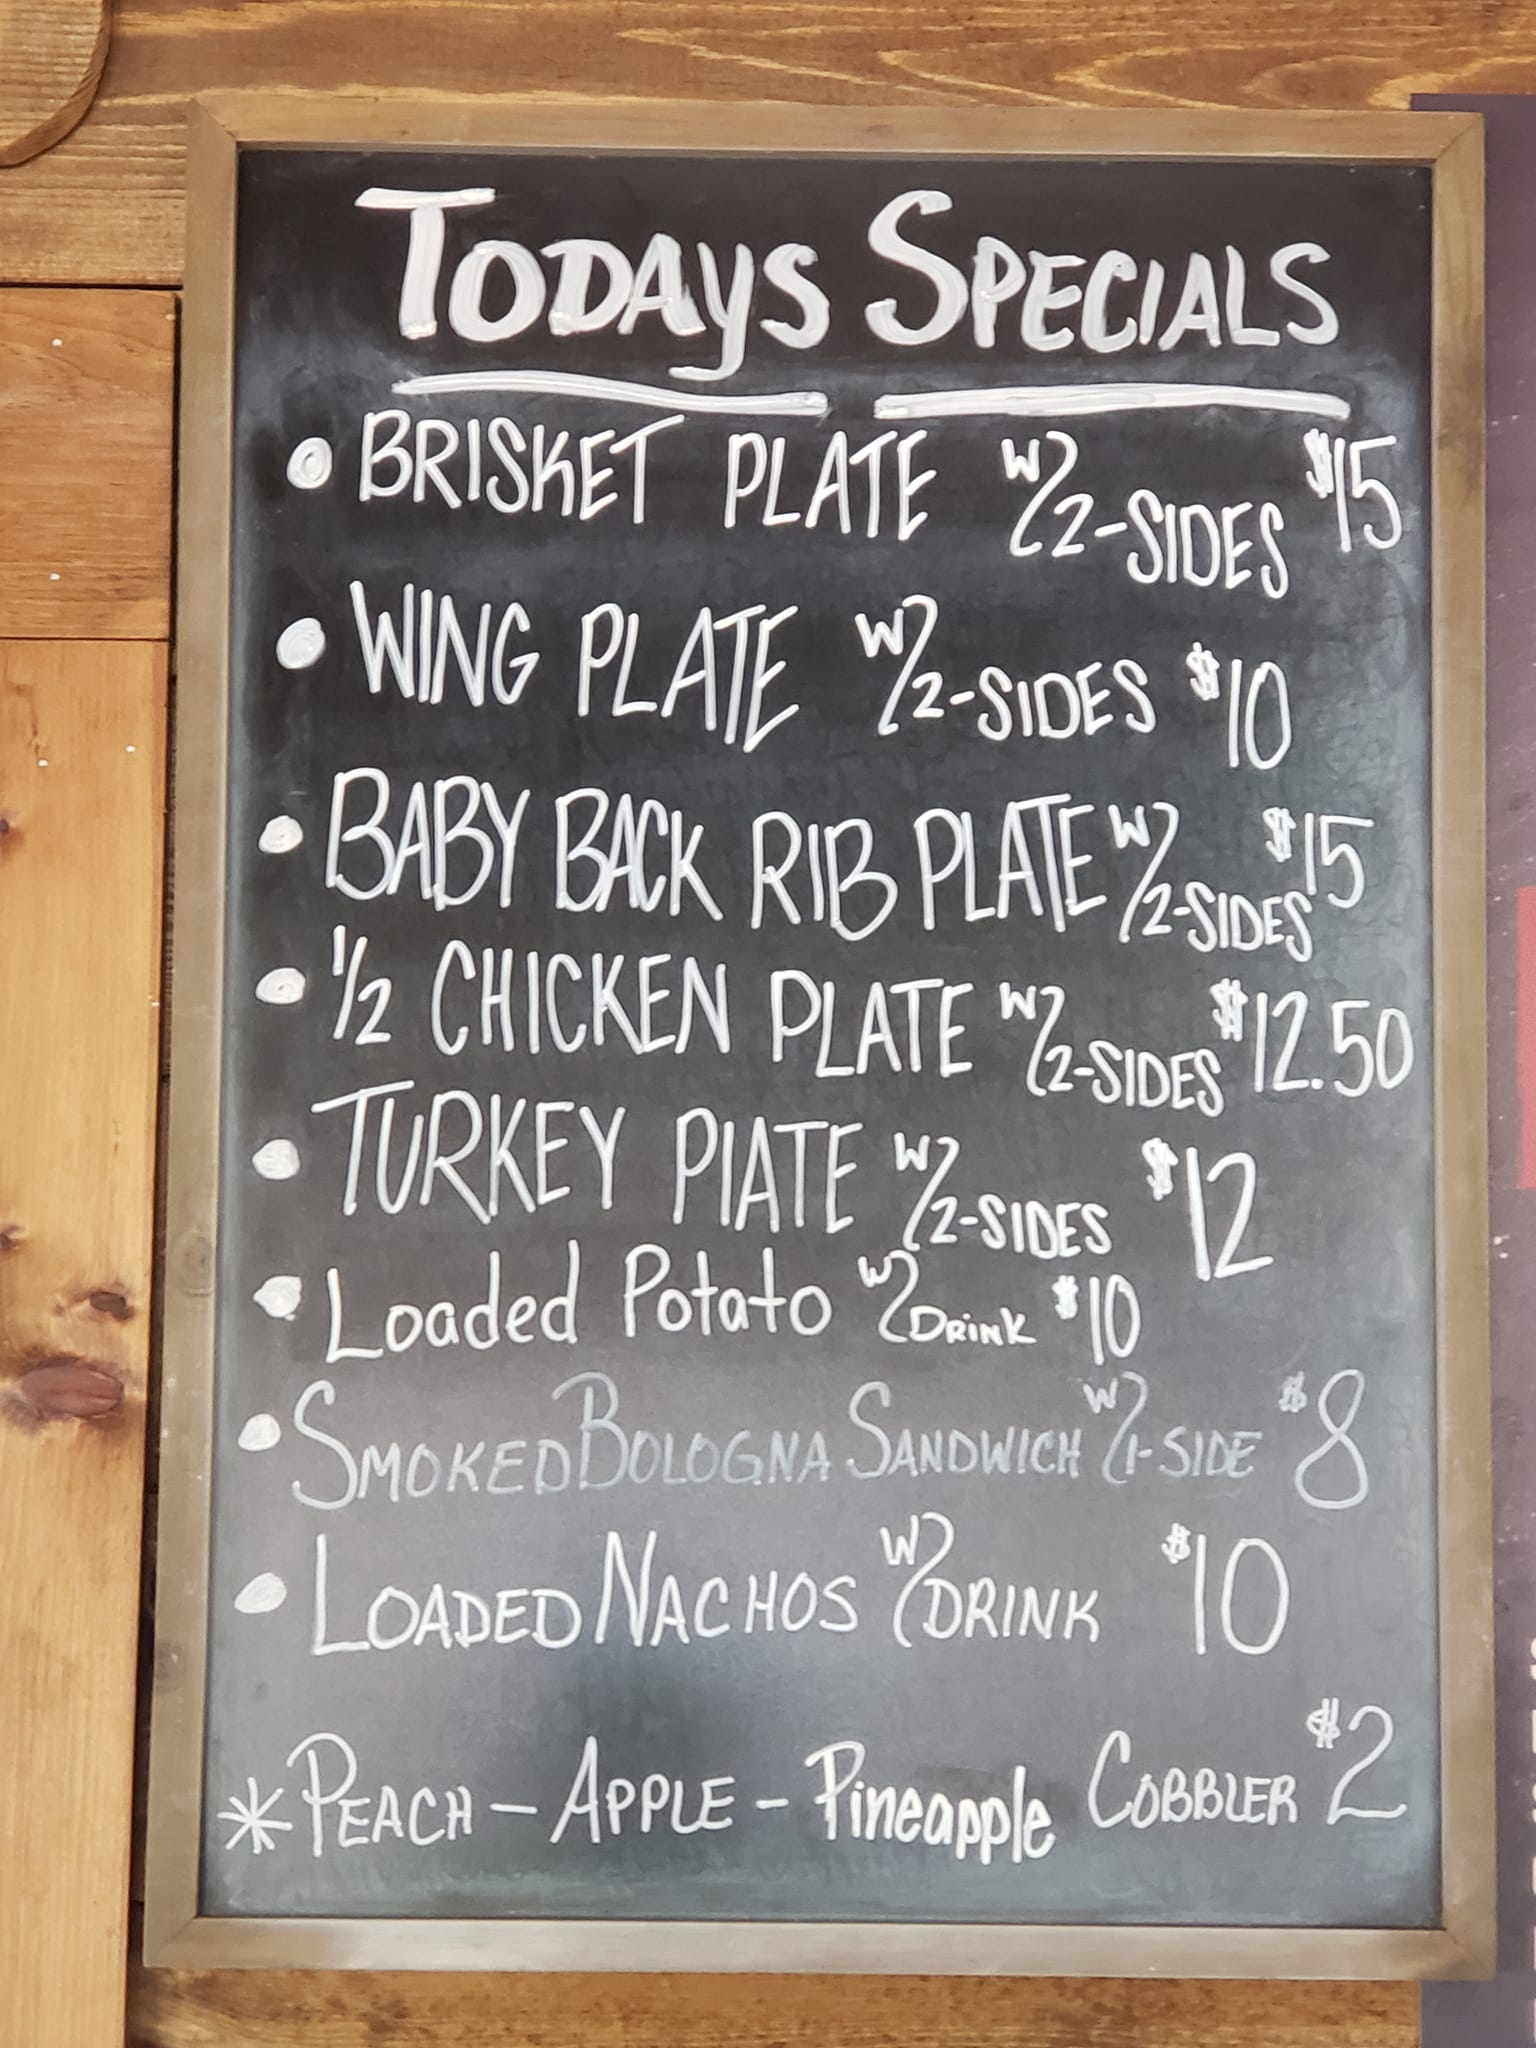 TODAYS SPECIALS
BRISKET PLATE W/2-SIDES $15
WING PLATE W/2-SIDES $10
BABY BACK RIB PLATE W/2-SIDES $15
1/2 CHICKEN PLATE W/2-SIDES $12.50
TURKEY PlATE W/2-SIDES $12
Loaded Potato W/DRINK $10
SMOKED BOLOGNA SANDWICH W/1-SIDE $8
LOADED NACHOS W/DRINK $10
* PEACH - APPLE - Pineapple COBBLER $2